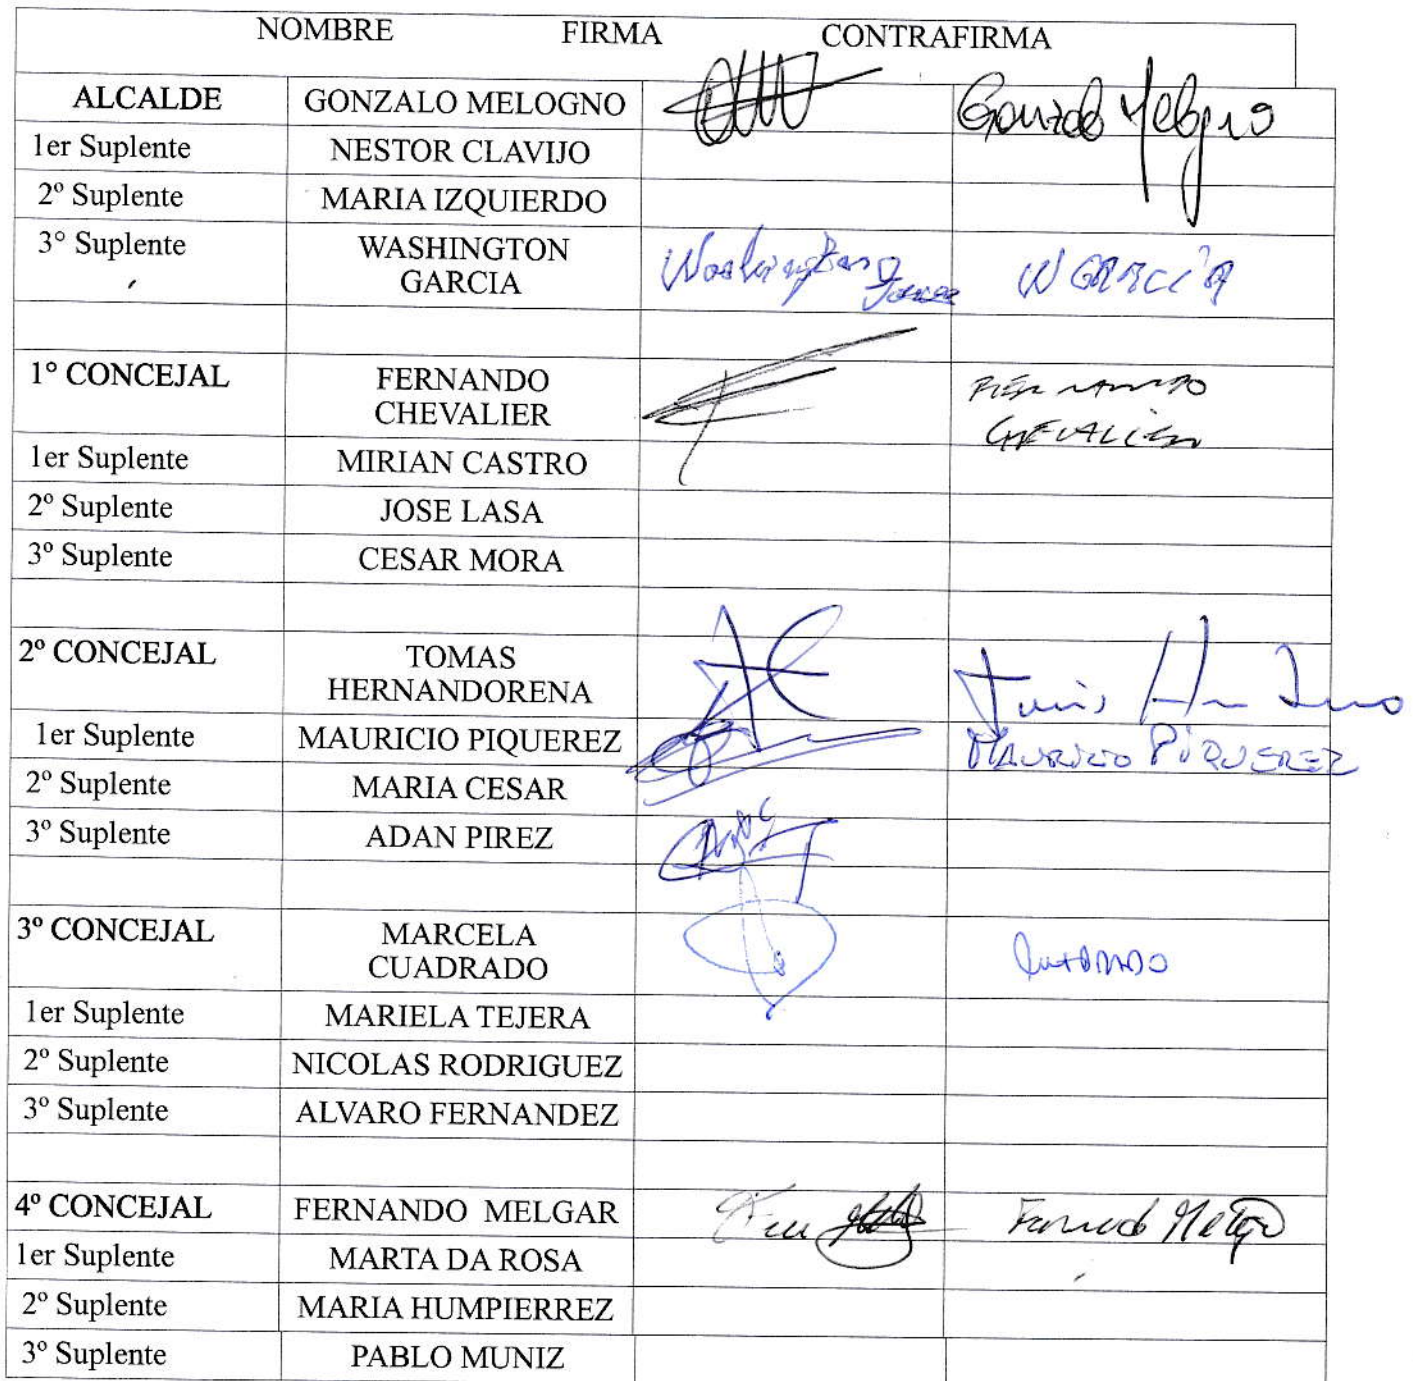 NOMBRE FIRMA CONTRAFIRMA
ALCALDE GONZALO MELOGNO Gonzalo Melogno
1er Suplente NESTOR CLAVIJO
2º Suplente MARIA IZQUIERDO
3° Suplente WASHINGTON
GARCIA Washington W GARCÍA
1° CONCEJAL FERNANDO
CHEVALIER FERNANDO
CHEVALIER
1er Suplente MIRIAN CASTRO
2º Suplente JOSE LASA
3º Suplente CESAR MORA
2º CONCEJAL TOMAS
HERNANDORENA
1er Suplente MAURICIO PIQUEREZ MAURICIO PIQUEREZ
2º Suplente MARIA CESAR
3º Suplente ADAN PIREZ
3º CONCEJAL MARCELA
CUADRADO CUADRADO
1er Suplente MARIELA TEJERA
2º Suplente NICOLAS RODRIGUEZ
3º Suplente ALVARO FERNANDEZ
4º CONCEJAL FERNANDO MELGAR Fernando Melgar
1er Suplente MARTA DA ROSA
2º Suplente MARIA HUMPIERREZ
3º Suplente PABLO MUNIZ